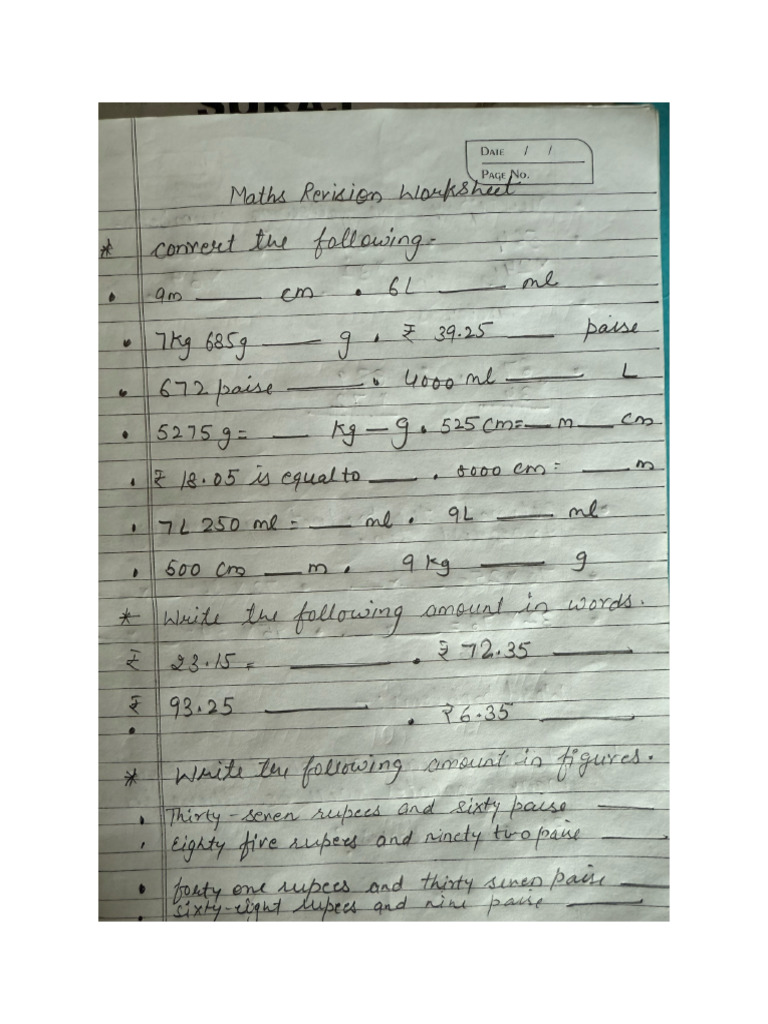 DATE / /
PAGE NO.
Maths Revision Worksheet
* Convert the following-
• 9m ___ cm • 6L ___ ml
• 7kg 685g ___ g • ₹ 39.25 ___ paise
• 672 paise ___ • 4000 ml ___ L
• 5275g = __ kg — g • 525 cm= __ m __ cm
• ₹ 18.05 is equal to ___ • 8000 cm = ___ m
• 7L 250 ml = ___ ml • 9L ___ ml
• 500 cm ___ m • 9 kg ___ g
* Write the following amount in words.
₹ 23.15 = ___ • ₹ 72.35 ___
₹ 93.25 ___ • ₹6.35 ___
* Write the following amount in figures.
• Thirty-seven rupees and sixty paise ___
• Eighty five rupees and ninety two paise ___
• forty one rupees and thirty seven paise ___
• sixty-eight rupees and nine paise ___